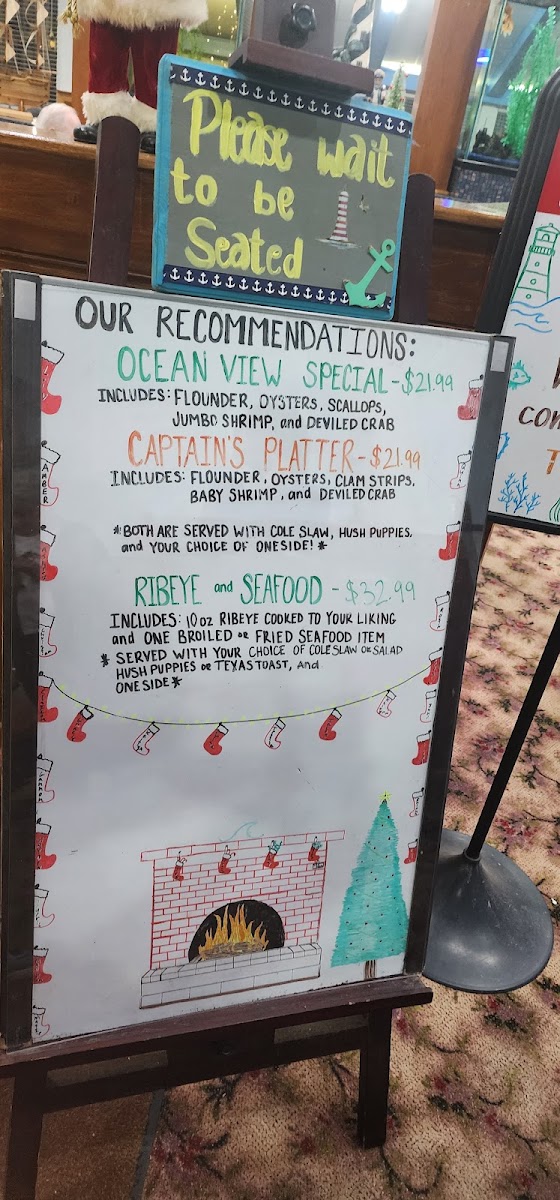 Please wait
to be
Seated
OUR RECOMMENDATIONS:
OCEAN VIEW SPECIAL-$21.99
INCLUDES: FLOUNDER, OYSTERS, SCALLOPS,
JUMBO SHRIMP, and DEVILED CRAB
CAPTAIN'S PLATTER-$21.99
INCLUDES: FLOUNDER, OYSTERS, CLAM STRIPS,
BABY SHRIMP, and DEVILED CRAB
*BOTH ARE SERVED WITH COLE SLAW, HUSH PUPPIES,
and YOUR CHOICE OF ONE SIDE! *
RIBEYE and SEAFOOD - $32.99
INCLUDES: 10 oz RIBEYE COOKED TO YOUR LIKING
and ONE BROILED or FRIED SEAFOOD ITEM
* SERVED WITH YOUR CHOICE OF COLE SLAW OR SALAD
HUSH PUPPIES or TEXAS TOAST, and
ONE SIDE*
AMBER
COM
T